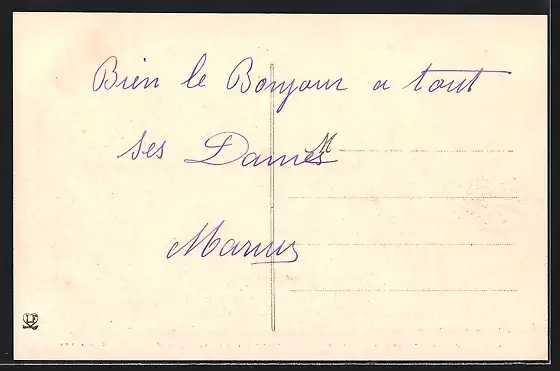 Bien le Bonjour a tout
ses Dames
M
Marius